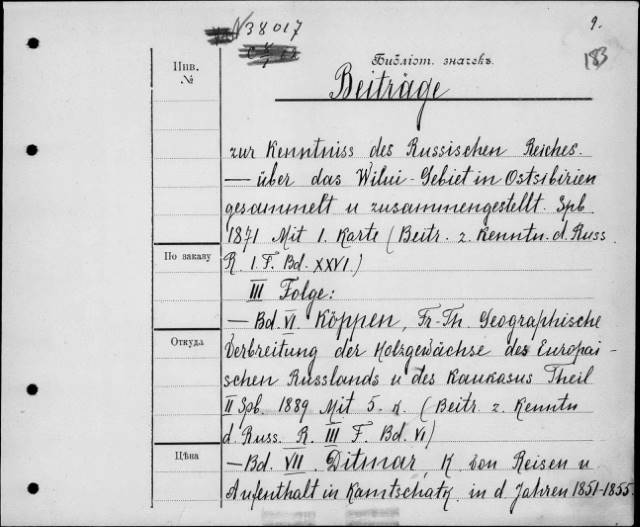 №38017
9.
183
Библіот. значекъ.
Инв.
№
Beiträge
zur Kenntniss des Russischen Reiches.
— über das Wilui-Gebiet in Ostsibirien
gesammelt u zusammengestellt. Spb.
1871 Mit 1. Karte (Beitr. z. Kenntn. d. Russ
По заказу
R. I. F. Bd. XXVI.)
III Folge:
— Bd. VI. Köppen, Fr-Th. Geographische
Откуда
Verbreitung der Holzgewächse des Europäi-
schen Russlands u des Kaukasus Theil
II Spb. 1889 Mit 5. K. (Beitr. z. Kenntn
d. Russ. R. III F. Bd. VI)
Цѣна
— Bd. VII. Ditmar, K. von Reisen u.
Aufenthalt in Kamtschatk in d. Jahren 1851-1855.